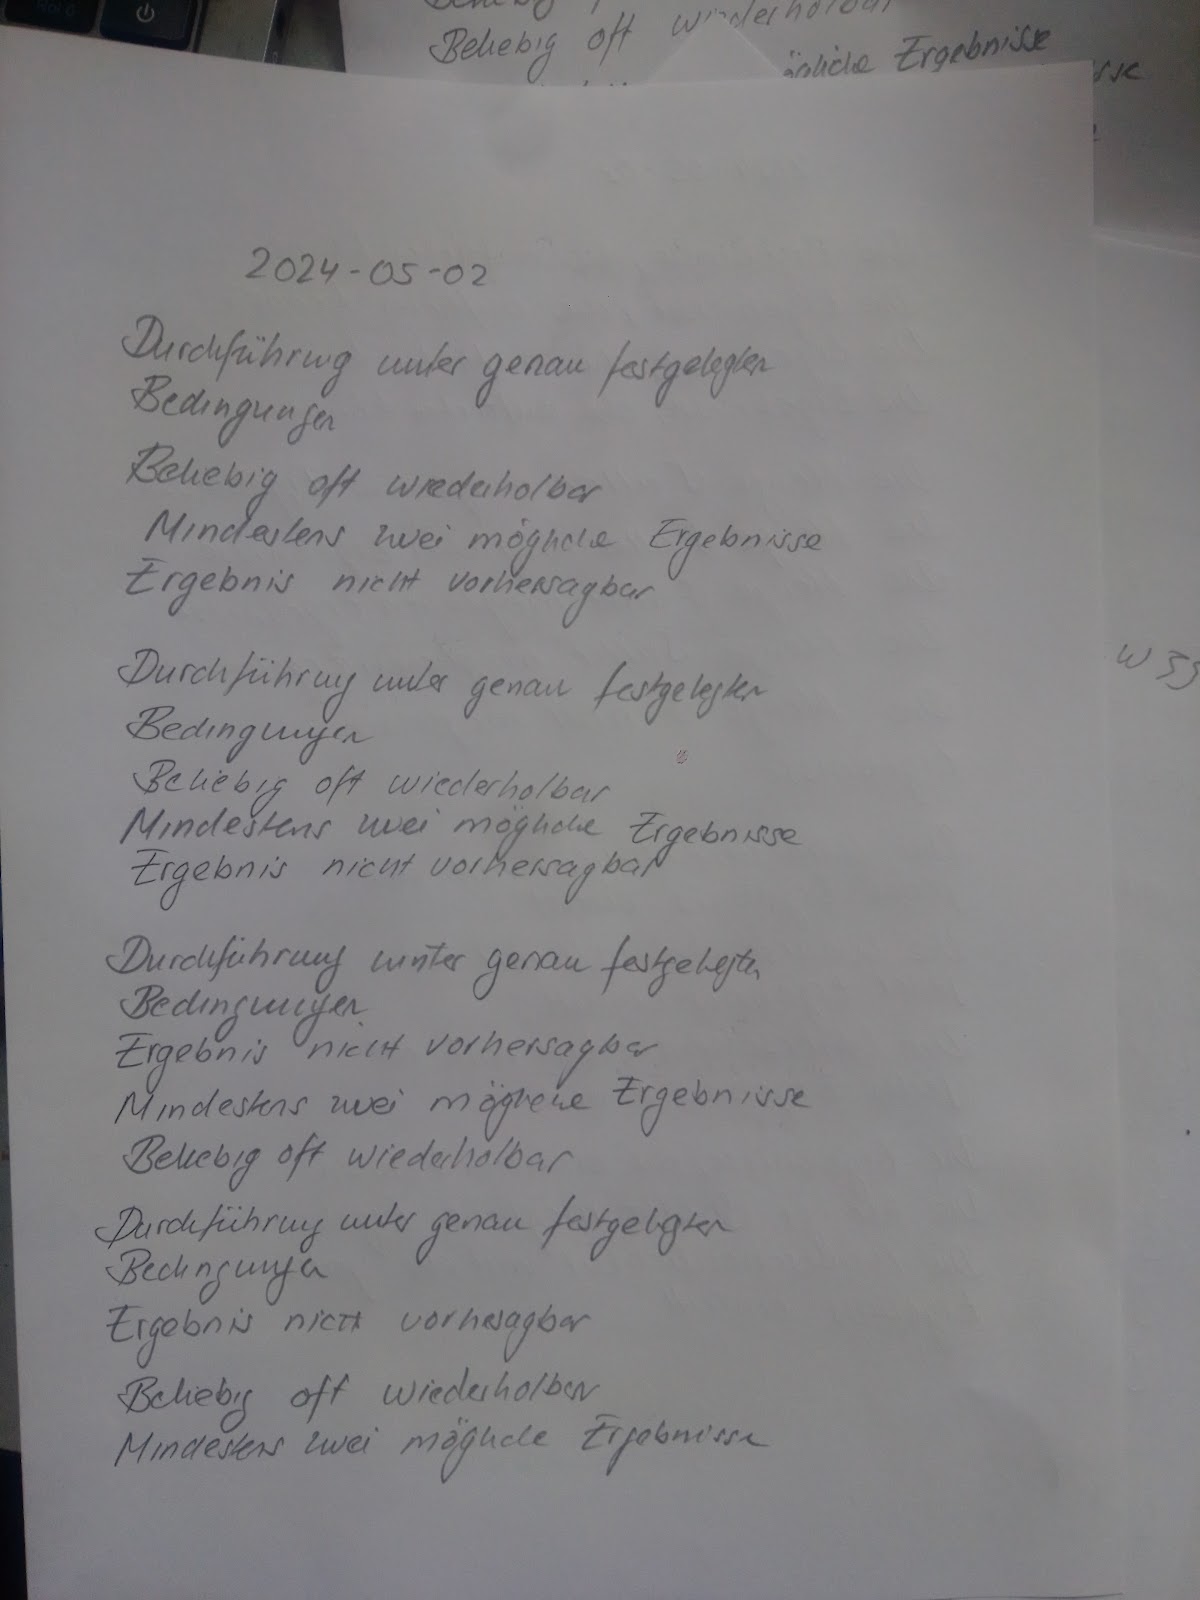 Beliebig oft wiederholbar
mögliche Ergebnisse
2024-05-02
Durchführung unter genau festgelegten
Bedingungen
Beliebig oft wiederholbar
Mindestens zwei mögliche Ergebnisse
Ergebnis nicht vorhersagbar
Durchführung unter genau festgelegten
Bedingungen
Beliebig oft wiederholbar
Mindestens zwei mögliche Ergebnisse
Ergebnis nicht vorhersagbar
Durchführung unter genau festgelegten
Bedingungen
Ergebnis nicht vorhersagbar
Mindestens zwei mögliche Ergebnisse
Beliebig oft wiederholbar
Durchführung unter genau festgelegten
Bedingungen
Ergebnis nicht vorhersagbar
Beliebig oft wiederholbar
Mindestens zwei mögliche Ergebnisse